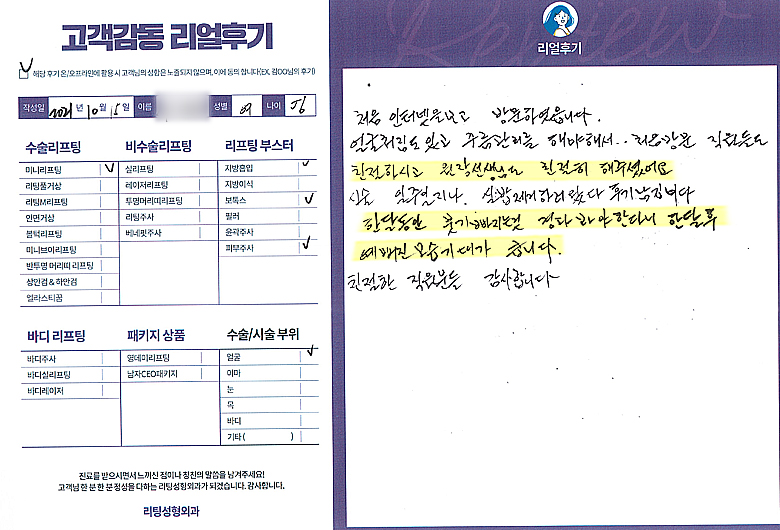 고객감동 리얼후기
해당 후기 온/오프라인에 활용 시 고객님의 성함은 노출되지 않으며, 이에 동의 합니다(EX. 김OO님의 후기)
작성일 2021년 10월 15일 이름 성별 여 나이
수술리프팅
미니리프팅
리팅풀거상
리팅M리프팅
안면거상
붐턱리프팅
미니브이리프팅
반투명 머리띠 리프팅
상안검 & 하안검
엘라스티꿈
비수술리프팅
실리프팅
레이저리프팅
투명머리띠리프팅
리팅주사
버네핏주사
리프팅 부스터
지방흡입
지방이식
보톡스
필러
윤곽주사
피부주사
바디 리프팅
바디주사
바디실리프팅
바디레이저
패키지 상품
영데이리프팅
남자CEO패키지
수술/시술 부위
얼굴
이마
눈
목
바디
기타 ( )
진료를 받으시면서 느끼신 점이나 칭찬의 말씀을 남겨주세요!
고객님 한 분 한 분 정성을 다하는 리팅성형외과가 되겠습니다. 감사합니다.
리팅성형외과
Review
리얼후기
처음 인터넷을 보고 방문하였습니다.
얼굴처짐도 있고 주름관리를 해야해서.. 처음방문 직원분도
친절하시고 원장선생님도 친절히 해주셨어요
시술 일주일지나. 실밥제거하러왔다 후기남깁니다
한달동안 붓기빠지는걸 경과봐야한다니 한달후
예뻐진모습 기대가 됩니다.
친절한 직원분들 감사합니다